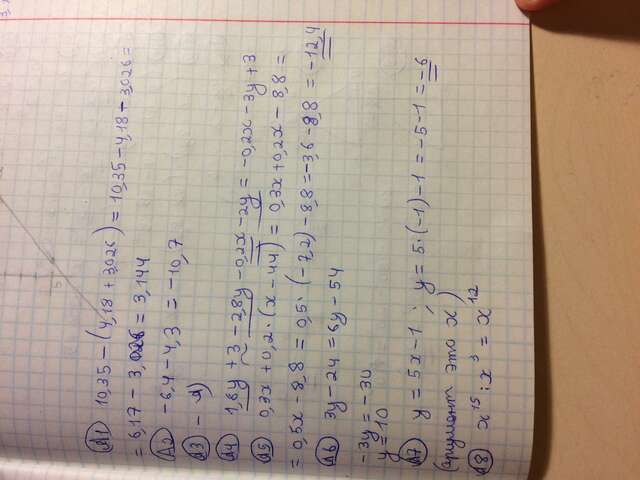 А1 10,35 - (4,18 + 3,026) = 10,35 - 4,18 - 3,026 =
= 6,17 - 3,026 = 3,144
А2 -6,4 - 4,3 = -10,7
А3 -
А4 1,6y + 3 - 2,8y - 0,2x - 2y = -0,2x - 3y + 3
А5 0,3x + 0,2 · (x - 44) = 0,3x + 0,2x - 8,8 =
= 0,5x - 8,8 = 0,5 · (-7,2) - 8,8 = -3,6 - 8,8 = -12,4
А6 3y - 24 = 6y - 54
-3y = -30
y = 10
А7 y = 5x - 1 ; y = 5 · (-1) - 1 = -5 - 1 = -6
(аргумент это x)
А8 x¹⁵ : x³ = x¹²